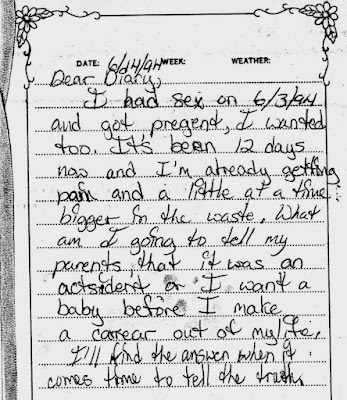 DATE: 6/14/94 WEEK: WEATHER:
Dear Diary,
I had sex on 6/3/94
and got pregent, I wanted
too. It's been 12 days
now and I'm already getting
pain and a little at a time
bigger in the waste. What
am I going to tell my
parents, that it was an
actsident or I want a
baby before I make
a carrear out of my life.
I'll find the answer when it
comes time to tell the truth.